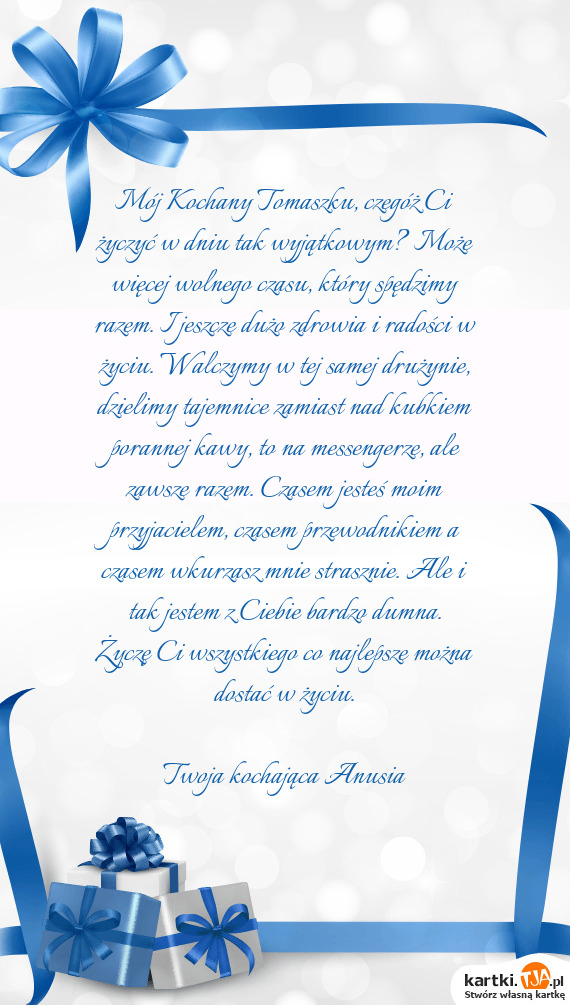 Mój Kochany Tomaszku, czegóż Ci
życzyć w dniu tak wyjątkowym? Może
więcej wolnego czasu, który spędzimy
razem. I jeszcze dużo zdrowia i radości w
życiu. Walczymy w tej samej drużynie,
dzielimy tajemnice zamiast nad kubkiem
porannej kawy, to na messengerze, ale
zawsze razem. Czasem jesteś moim
przyjacielem, czasem przewodnikiem a
czasem wkurzasz mnie strasznie. Ale i
tak jestem z Ciebie bardzo dumna.
Życzę Ci wszystkiego co najlepsze można
dostać w życiu.
Twoja kochająca Anusia
kartki.TJA.pl
Stwórz własną kartkę